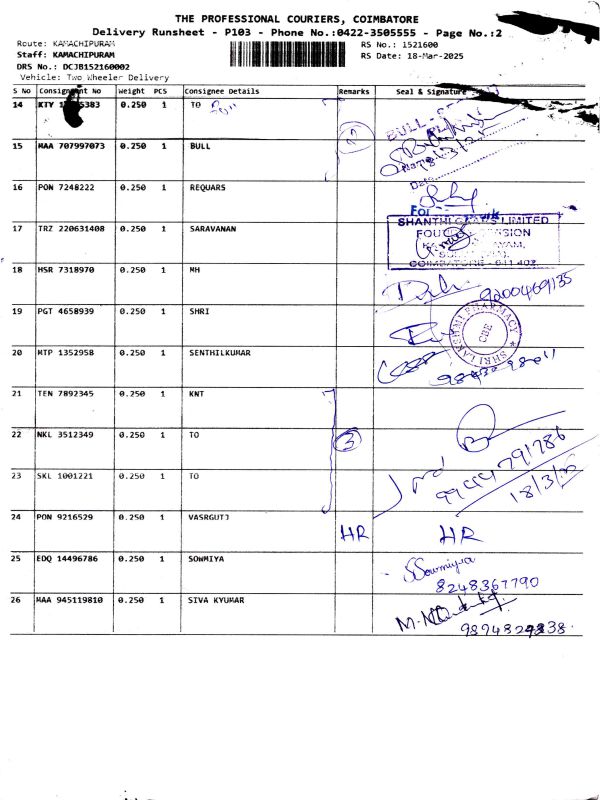 THE PROFESSIONAL COURIERS, COIMBATORE
Delivery Runsheet - P103 - Phone No.:0422-3505555 - Page No.:2
Route: KAMACHIPURAM
Staff: KAMACHIPURAM
DRS No.: DCJB152160002
Vehicle: Two Wheeler Delivery
RS No.: 1521600
RS Date: 18-Mar-2025
S No Consignment No Weight PCS Consignee Details Remarks Seal & Signature
14 KTY 0.250 1 TO
15 MAA 707997073 0.250 1 BULL
16 PON 7248222 0.250 1 REQUARS
17 TRZ 220631408 0.250 1 SARAVANAN
For
LIMITED
18 HSR 7318970 0.250 1 MH 9200469135
19 PGT 4658939 0.250 1 SHRI
SHRI LAKSHMI PHARMACY
CBE
20 MTP 1352958 0.250 1 SENTHILKUMAR
21 TEN 7892345 0.250 1 KNT
22 NKL 3512349 0.250 1 TO 3
23 SKL 1001221 0.250 1 TO
18/3/25
24 PON 9216529 0.250 1 VASRGUTJ HR HR
25 EDQ 14496786 0.250 1 SOWMIYA
S.Sowmiya
8248367790
26 MAA 945119810 0.250 1 SIVA KYUMAR